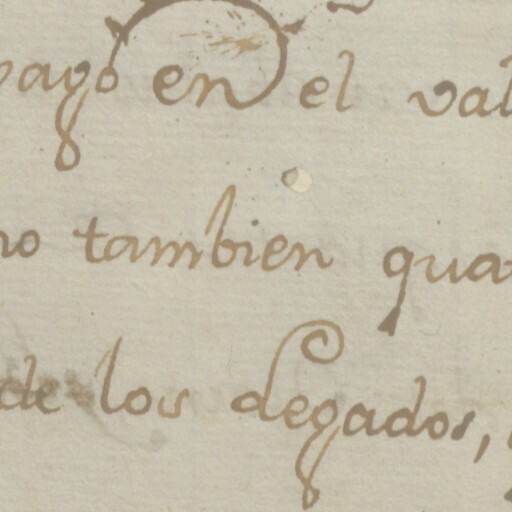 en el val
no tambien qua
de los degados,